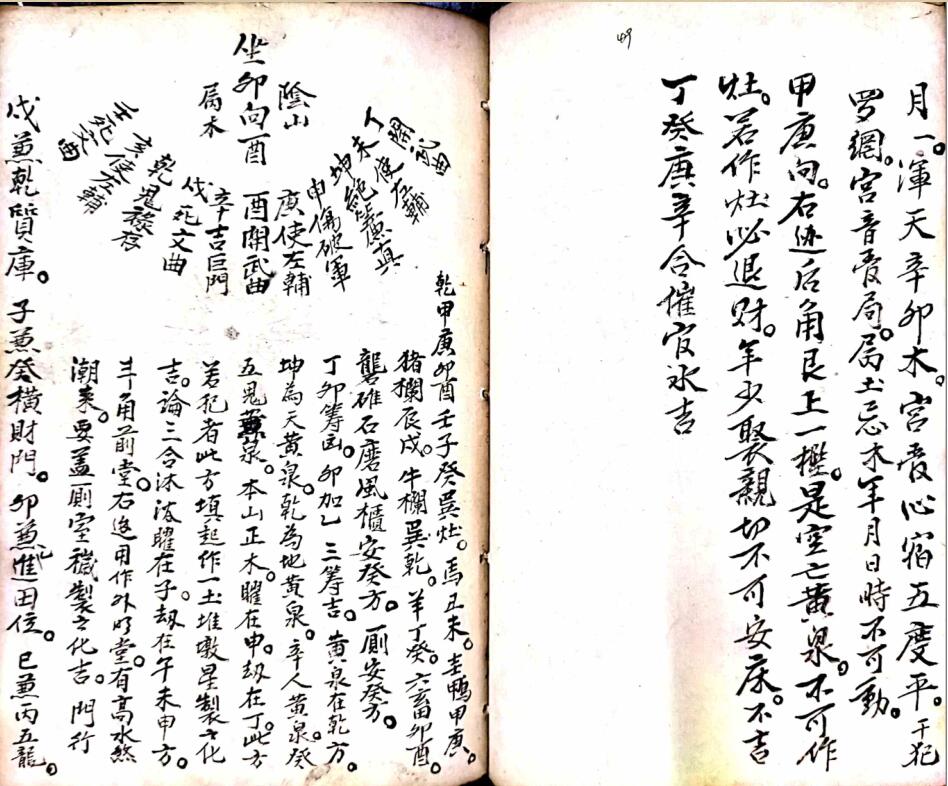 49
月一。渾天辛卯木。宮音心宿五度平。干犯
罗網。宮音局。局土忌木年月日時不可動。
甲庚向。右边后角艮上一樁。是空亡黄泉。不可作
灶。若作灶必退財。年少娶親切不可安床。不吉
丁癸庚辛合催官水吉
坐卯向酉
陰山
屬木
丁開
未使左輔
坤絕廉真
申傷破軍
庚使左輔
酉開武曲
辛吉巨門
戌死文曲
乾鬼祿存
亥使左輔
壬死文曲
乾甲庚卯酉壬子癸巽灶。馬丑未。
鴨甲庚。
猪欄辰戌。牛欄巽乾。羊丁癸。六畜卯酉。
礱碓石磨風櫃安癸方。厠安癸方。
丁卯籌凶。卯加乙三籌吉。黄泉在乾方。
坤為天黄泉。乾為地黄泉。辛人黄泉。癸
五鬼泉。本山正木。曜在申。刼在丁。此方
若犯者此方填起作一土堆墩星製之化
吉。論三合沐浴曜在子。刼在午未申方。
斗角前堂。右边用作外明堂。有高水然
潮来。要盖厠室穢製之化吉。門行
戌兼乾質庫。子兼癸横財門。卯兼乙進田位。巳兼丙五龍。